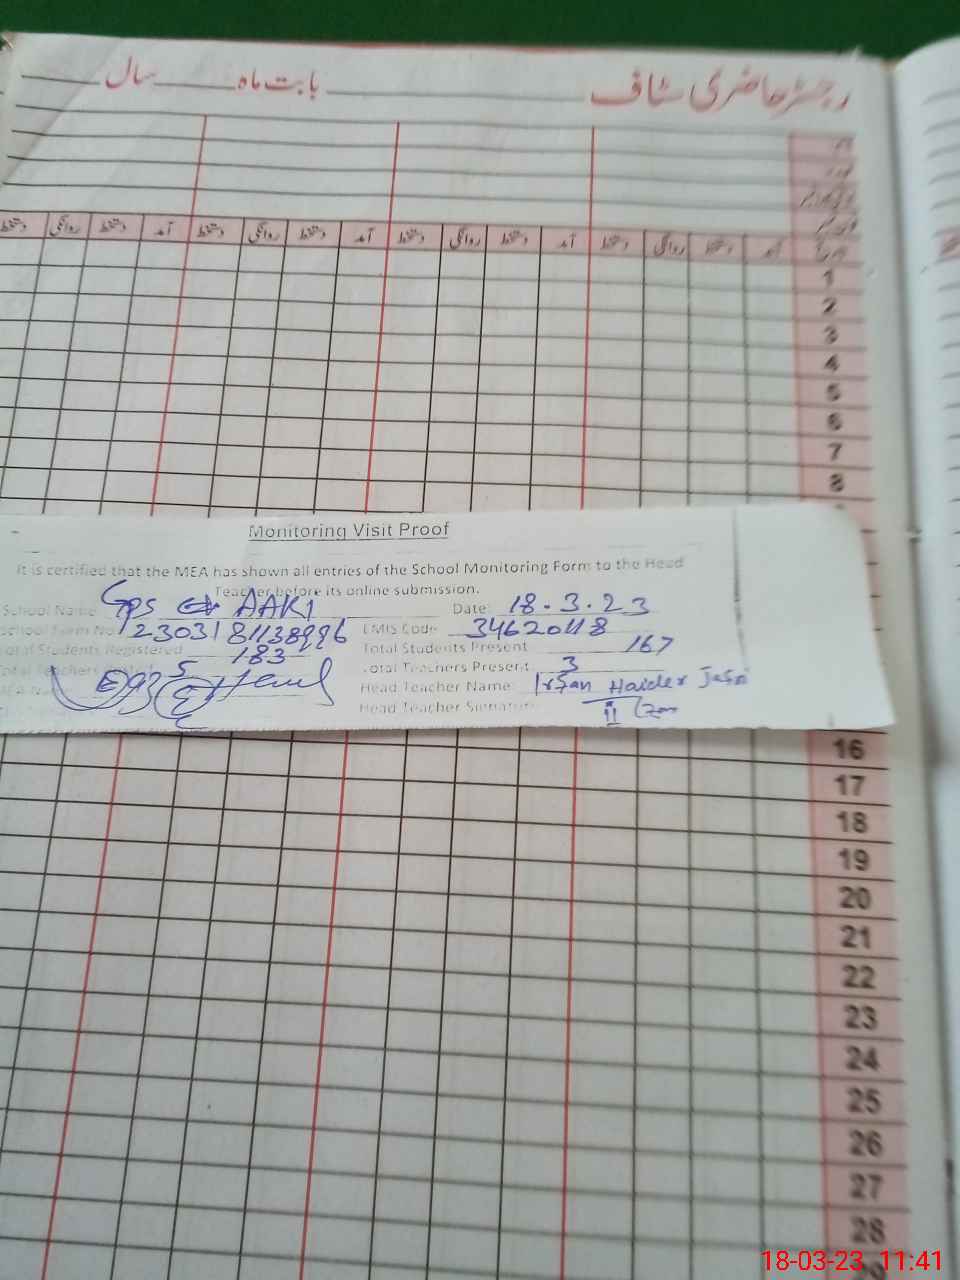 رجسٹر حاضری سٹاف بابت ماہ سال
آمد دستخط روانگی دستخط آمد دستخط روانگی دستخط آمد دستخط روانگی دستخط آمد دستخط روانگی دستخط
1
2
3
4
5
6
7
8
Monitoring Visit Proof
It is certified that the MEA has shown all entries of the School Monitoring Form to the Head
Teacher before its online submission.
School Name GPS AAK1 Date: 18.3.23
School Form No EMIS Code 34620118
Total Students Registered 183 Total Students Present 167
Total Teachers Posted 5 Total Teachers Present 3
Head Teacher Name: Irfan Haider Jafri
Head Teacher Signature
16
17
18
19
20
21
22
23
24
25
26
27
28
18-03-23 11:41